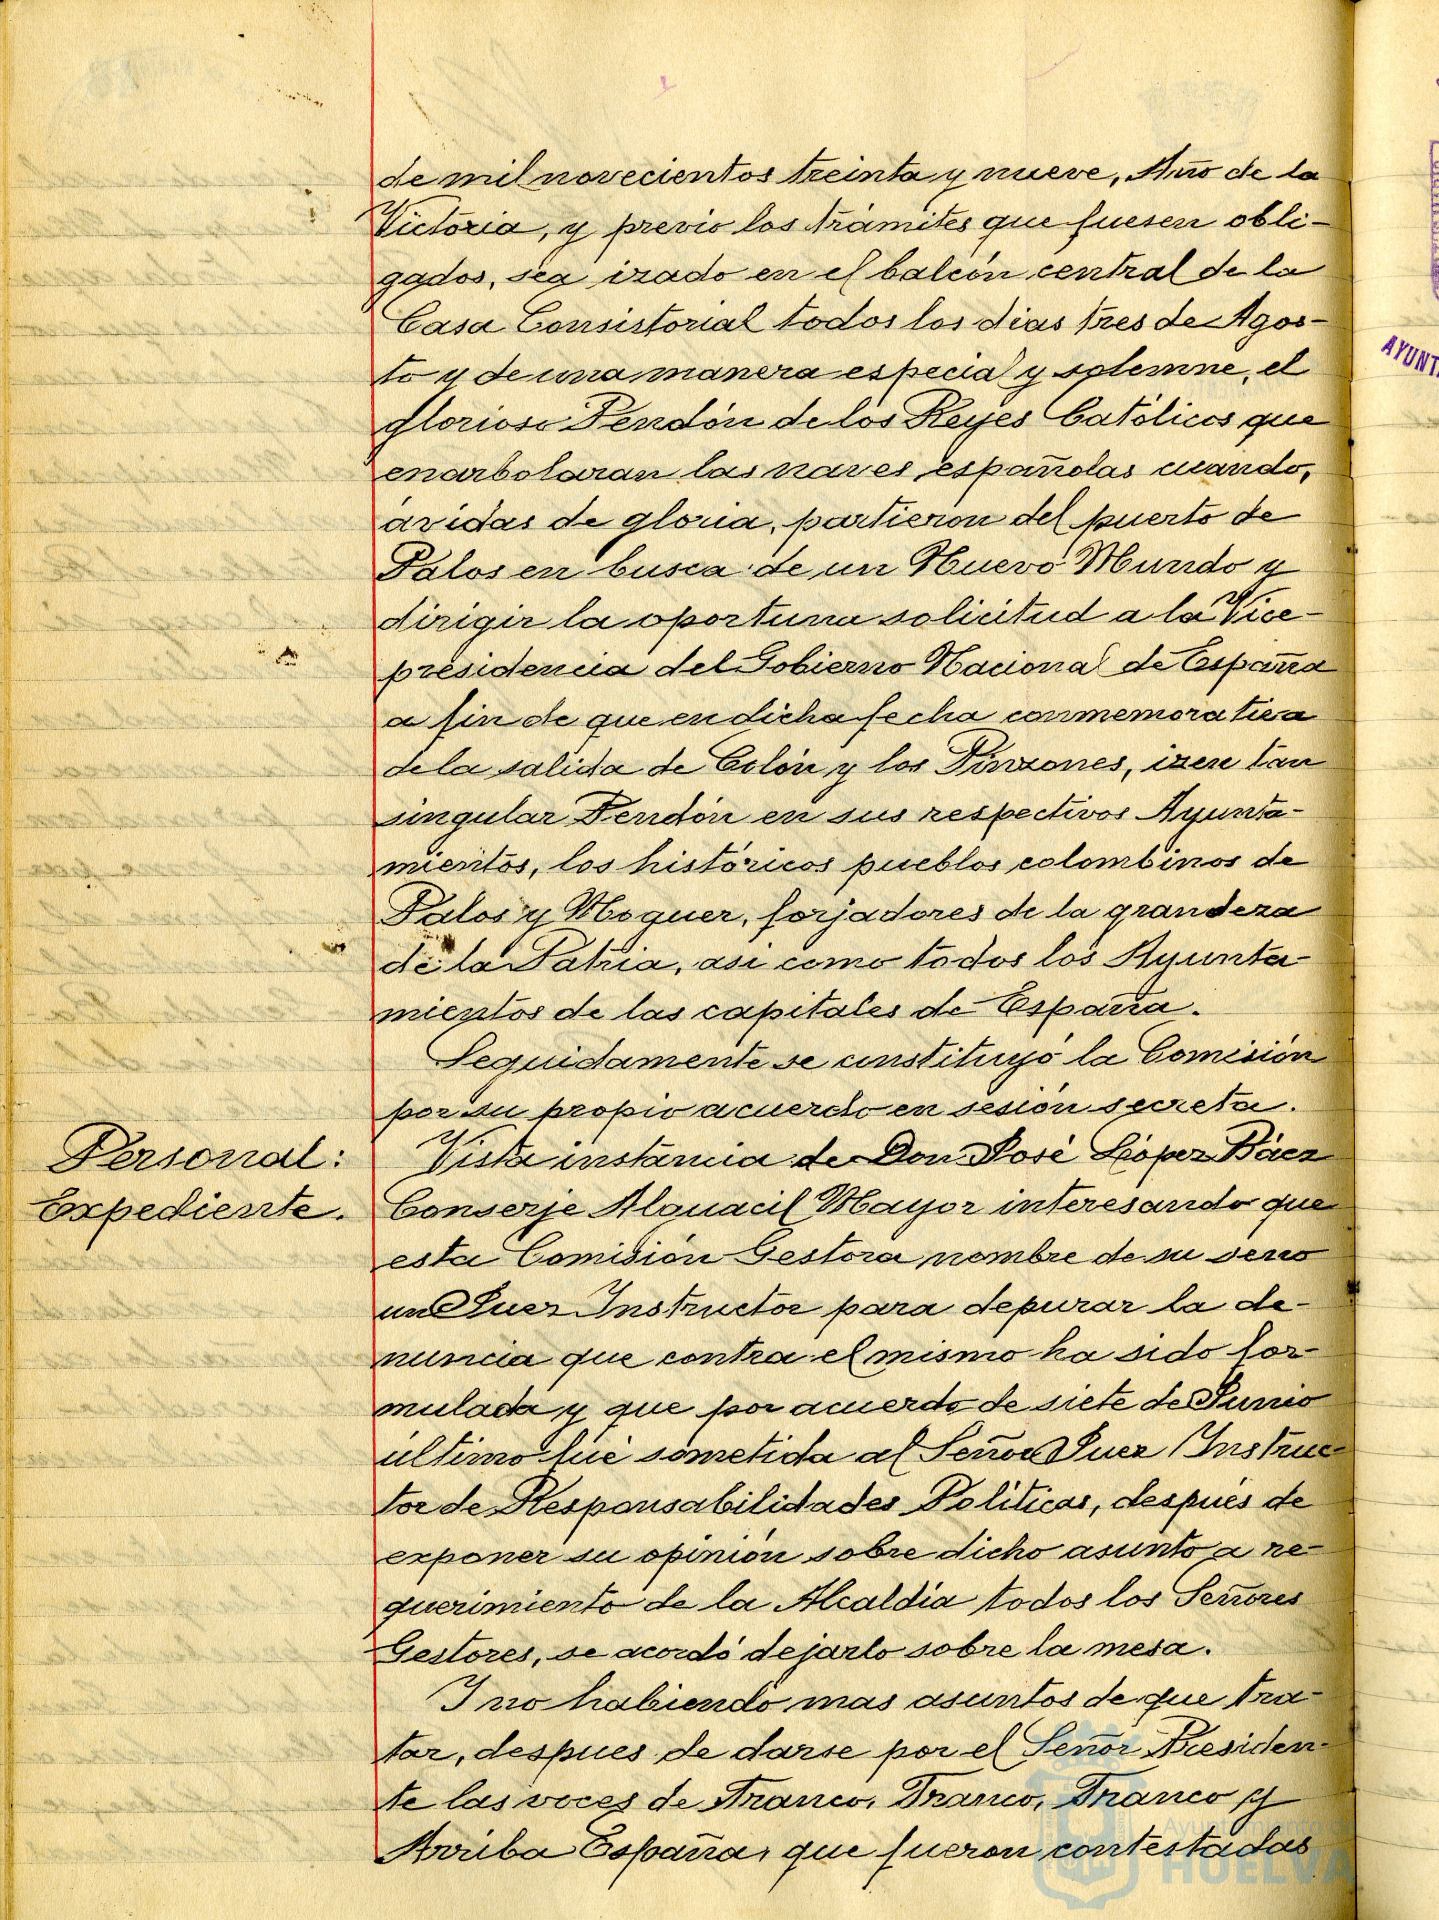 de mil novecientos treinta y nueve, Año de la
Victoria, y previo los trámites que fuesen obli-
gados, sea izado en el balcón central de la
Casa Consistorial todos los dias tres de Agos-
to y de una manera especial y solemne, el
glorioso Pendón de los Reyes Católicos que
enarbolaran las naves españolas cuando,
ávidas de gloria, partieron del puerto de
Palos en busca de un Nuevo Mundo y
dirigir la oportuna solicitud a la Vice-
presidencia del Gobierno Nacional de España
a fin de que en dicha fecha conmemorativa
de la salida de Colón y los Pinzones, izen tan
singular Pendón en sus respectivos Ayunta-
mientos, los históricos pueblos colombinos de
Palos y Moguer, forjadores de la grandeza
de la Patria, asi como todos los Ayunta-
mientos de las capitales de España.
Seguidamente se constituyó la Comisión
por su propio acuerdo en sesión secreta.
Personal:
Expediente.
Vista instancia de Don José López Báez
Conserje Alguacil Mayor interesando que
esta Comisión Gestora nombre de su seno
un Juez Instructor para depurar la de-
nuncia que contra el mismo ha sido for-
mulada y que por acuerdo de siete de Junio
último fué sometida al Señor Juez Instruc-
tor de Responsabilidades Politicas, después de
exponer su opinión sobre dicho asunto a re-
querimiento de la Alcaldía todos los Señores
Gestores, se acordó dejarlo sobre la mesa.
Y no habiendo mas asuntos de que tra-
tar, despues de darse por el Señor Presiden-
te las voces de Franco, Franco, Franco y
Arriba España, que fueron contestadas
AYUNT
Ayuntamiento de
HUELVA